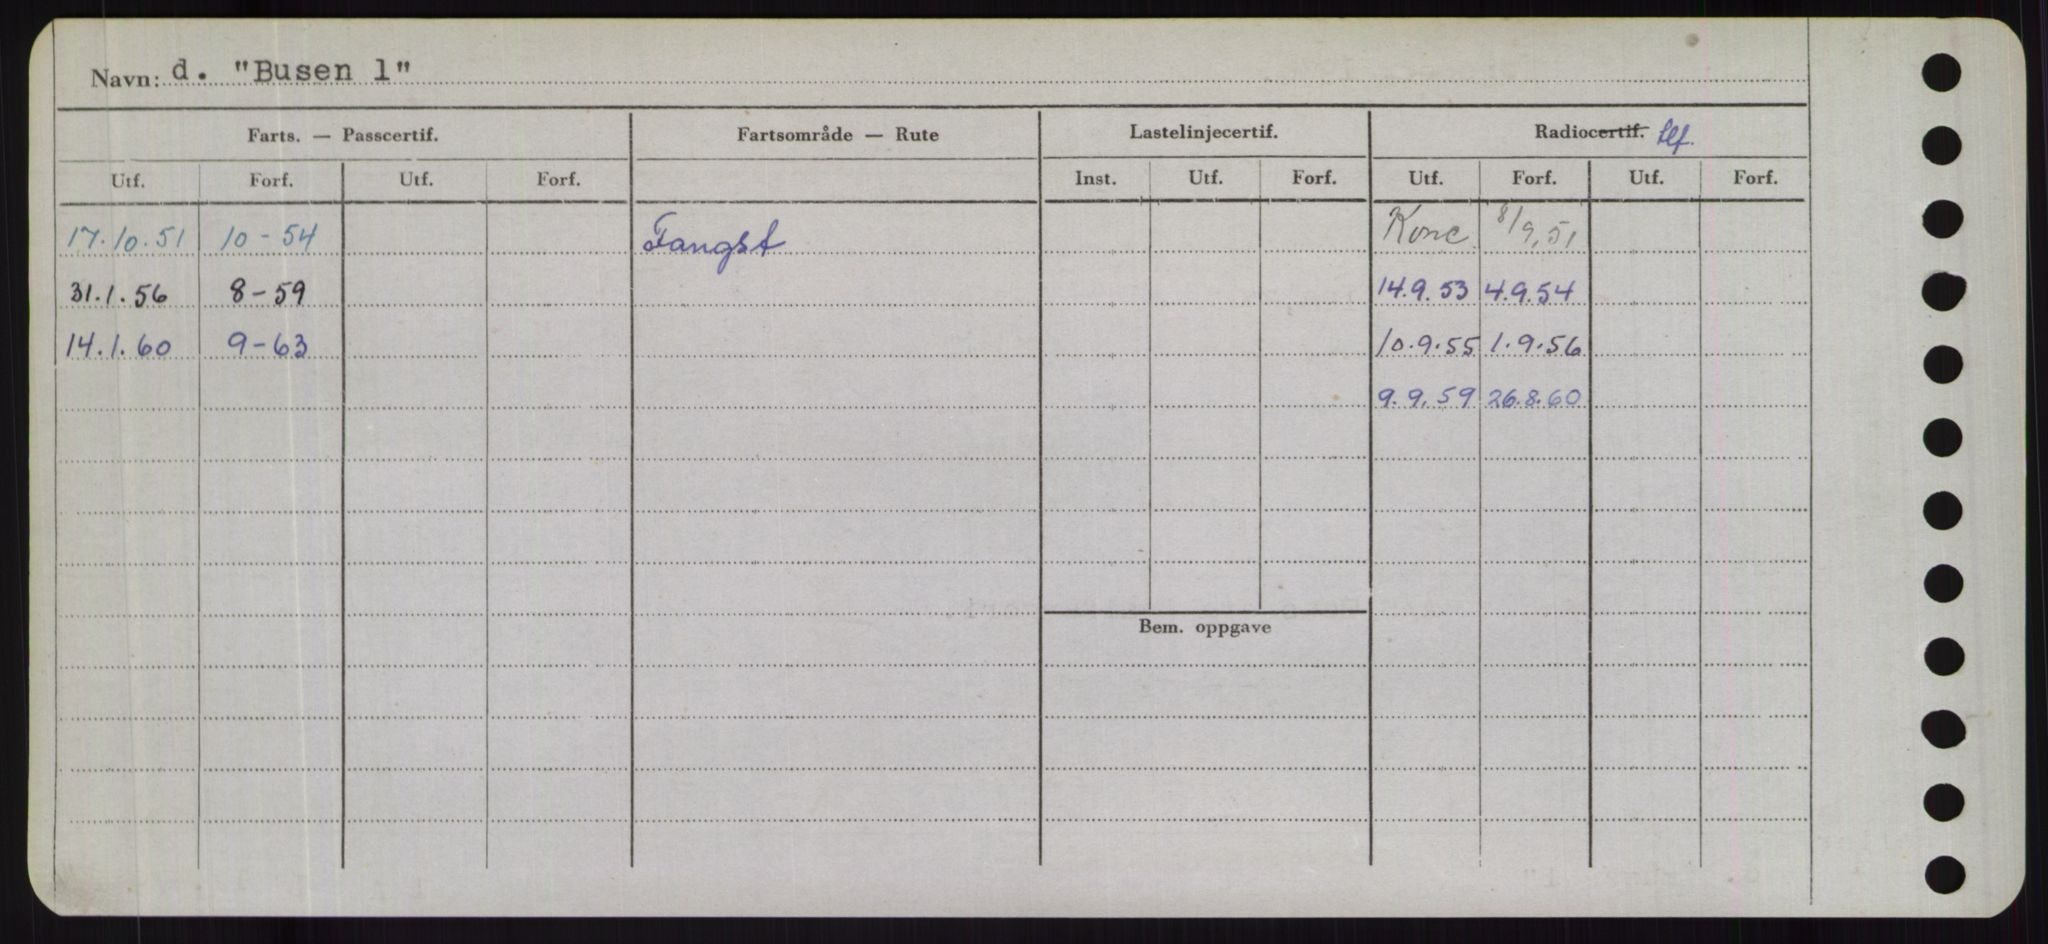 Navn: d. "Busen 1"
Farts. — Passcertif. Fartsområde — Rute Lastelinjecertif. Radiocertif. tlf.
Utf. Forf. Utf. Forf. Inst. Utf. Forf. Utf. Forf. Utf. Forf.
17.10.51 10-54 Fangst Konc 8/9.51
31.1.56 8-59 14.9.53 4.9.54
14.1.60 9-63 10.9.55 1.9.56
9.9.59 26.8.60
Bem. oppgave